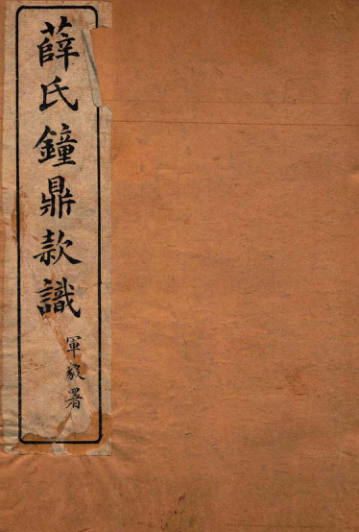 薛氏鐘鼎款識
軍毅署